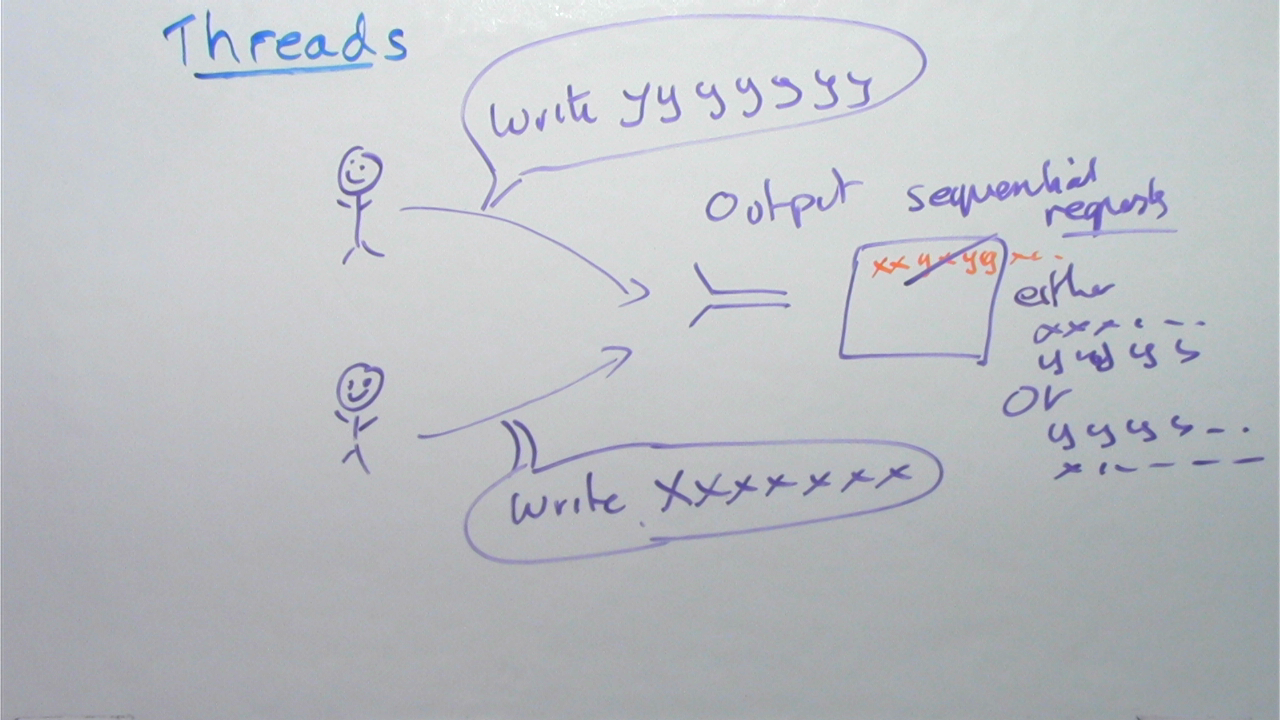 Threads
Write yyyyyyy
Output
sequential
requests
xxyxyy
either
xxx
yyyys
or
yyys--.
Write xxxxxxx